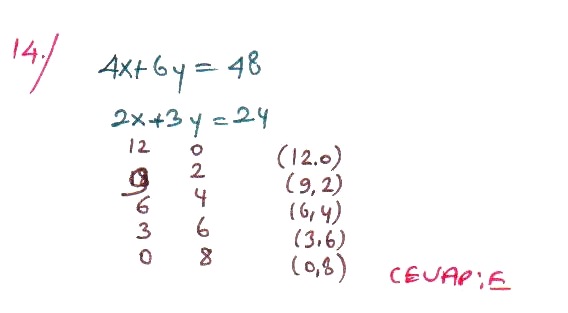 14./
4x+6y=48
2x+3y=24
12 0 (12.0)
9 2 (9,2)
6 4 (6,4)
3 6 (3,6)
0 8 (0,8)
CEVAP:E